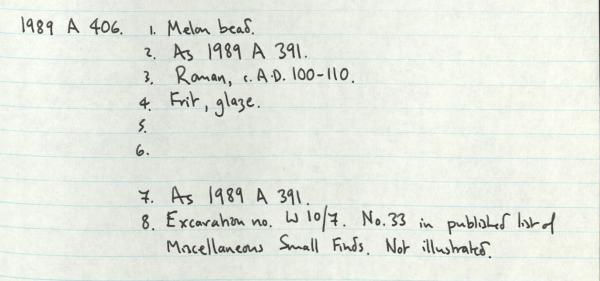 1989 A 406. 1. Melon bead.
2. As 1989 A 391.
3. Roman, c. A.D. 100-110.
4. Frit, glaze.
5.
6.
7. As 1989 A 391.
8. Excavation no. W 10/7. No. 33 in published list of
Miscellaneous Small Finds. Not illustrated.